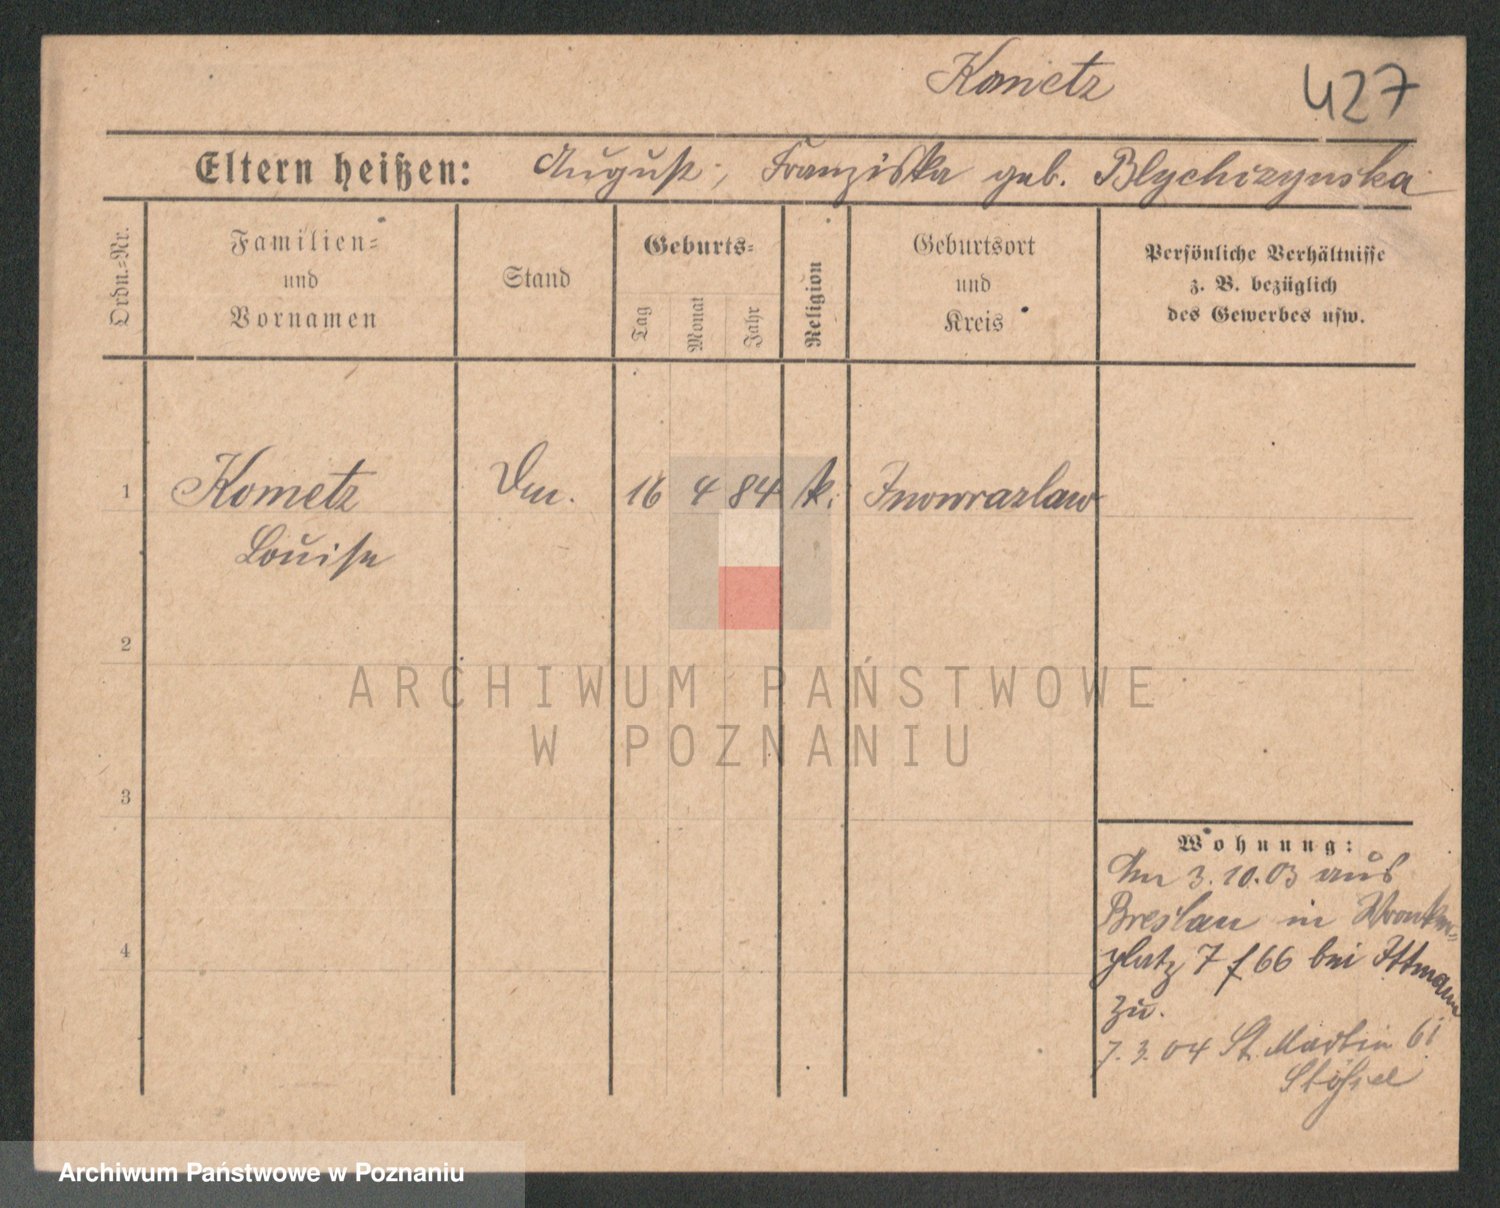 Kometz 427
Eltern heißen: August, Franziska geb. Blychizynska
Ordn.=Nr.
Familien=
und
Vornamen
Stand
Geburts=
Tag
Monat
Jahr
Religion
Geburtsort
und
Kreis
Persönliche Verhältnisse
z. B. bezüglich
des Gewerbes usw.
1 Kometz 16 4 84 k. Inowrazlaw
Louise
2
ARCHIWUM PAŃSTWOWE
W POZNANIU
3
4
Wohnung:
3.10.03 aus
Breslau in Wronker=
platz 7 f 66 bei Ittmann
zu.
7.3.04 St. Martin 61
Archiwum Państwowe w Poznaniu